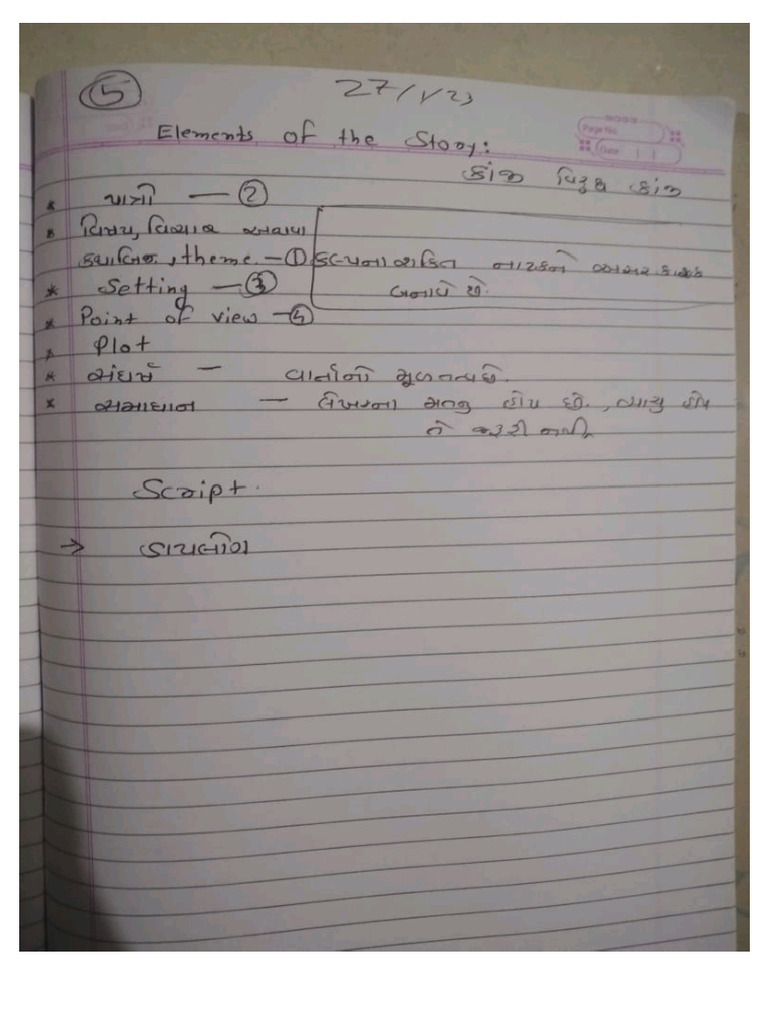 5
27/1/23
Page No.
Date
Elements of the Story:
કાંજી વિરુદ્ધ કાંજી
* પાત્રો — 2
* વિષય, વિચાર અથવા
કથાબિજ, theme. — 1
કલ્પના શક્તિ નાટકને અસરકારક
બનાવે છે.
* Setting — 3
* Point of view — 4
* Plot
* સંઘર્ષ — વાર્તાનો મૂળતત્વ છે.
* સમાધાન — લેખકના મતનુ હોય છે., ન્યાયુ હોય
તે જરૂરી નથી.
Script.
→ ડાયલોગ